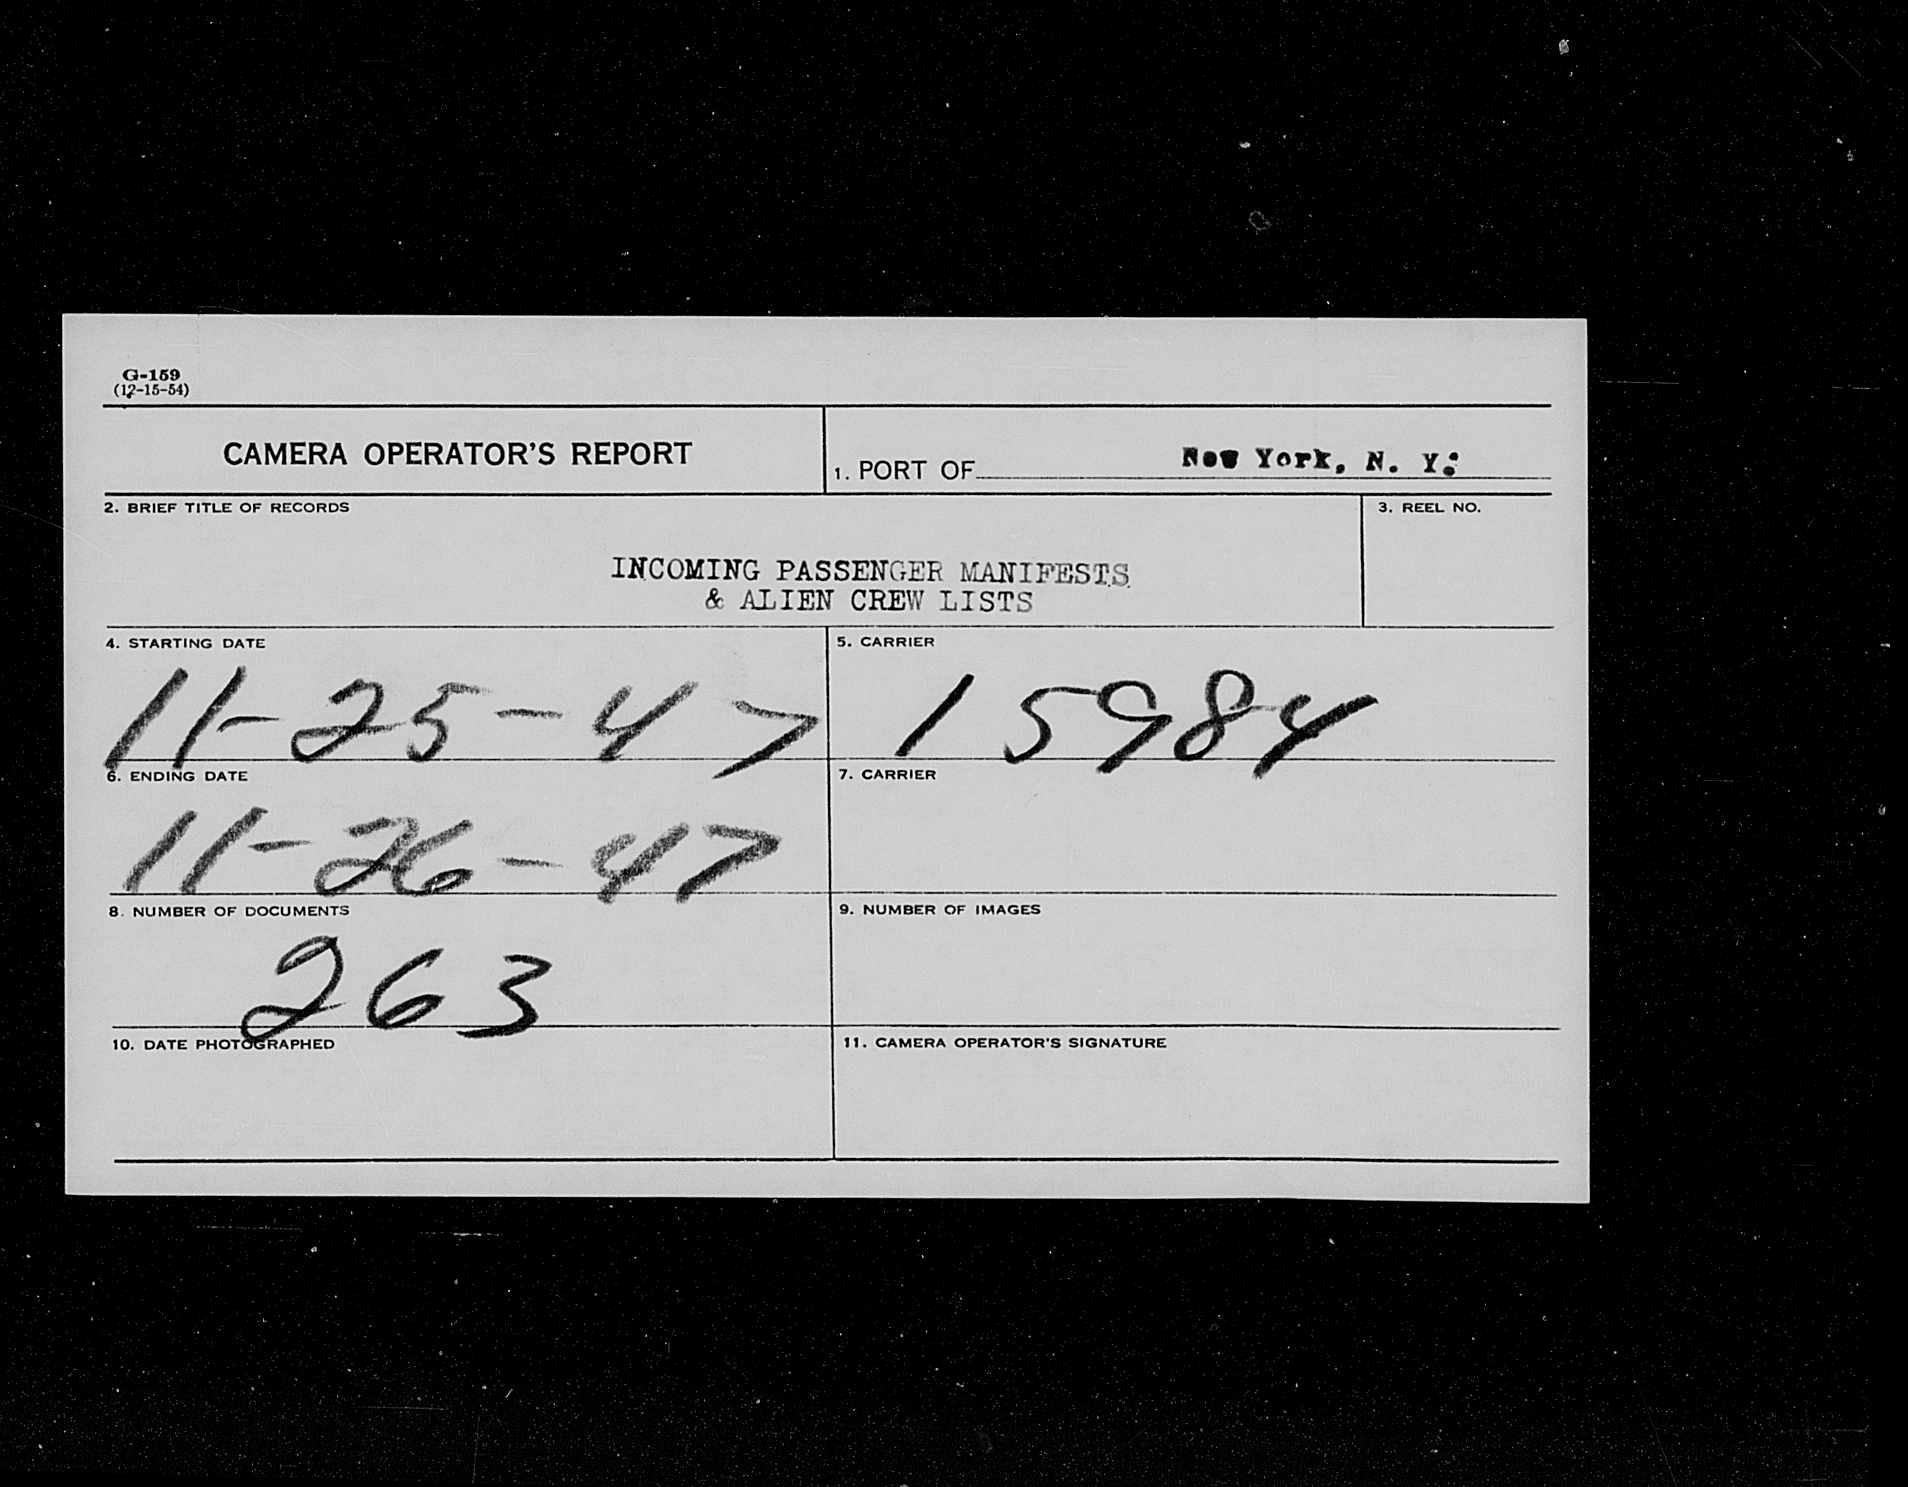 G-159
(12-15-54)
CAMERA OPERATOR'S REPORT
1. PORT OF New York, N. Y.
2. BRIEF TITLE OF RECORDS
3. REEL NO.
INCOMING PASSENGER MANIFESTS
& ALIEN CREW LISTS
4. STARTING DATE
11-25-47
5. CARRIER
15984
6. ENDING DATE
11-26-47
7. CARRIER
8. NUMBER OF DOCUMENTS
263
9. NUMBER OF IMAGES
10. DATE PHOTOGRAPHED
11. CAMERA OPERATOR'S SIGNATURE